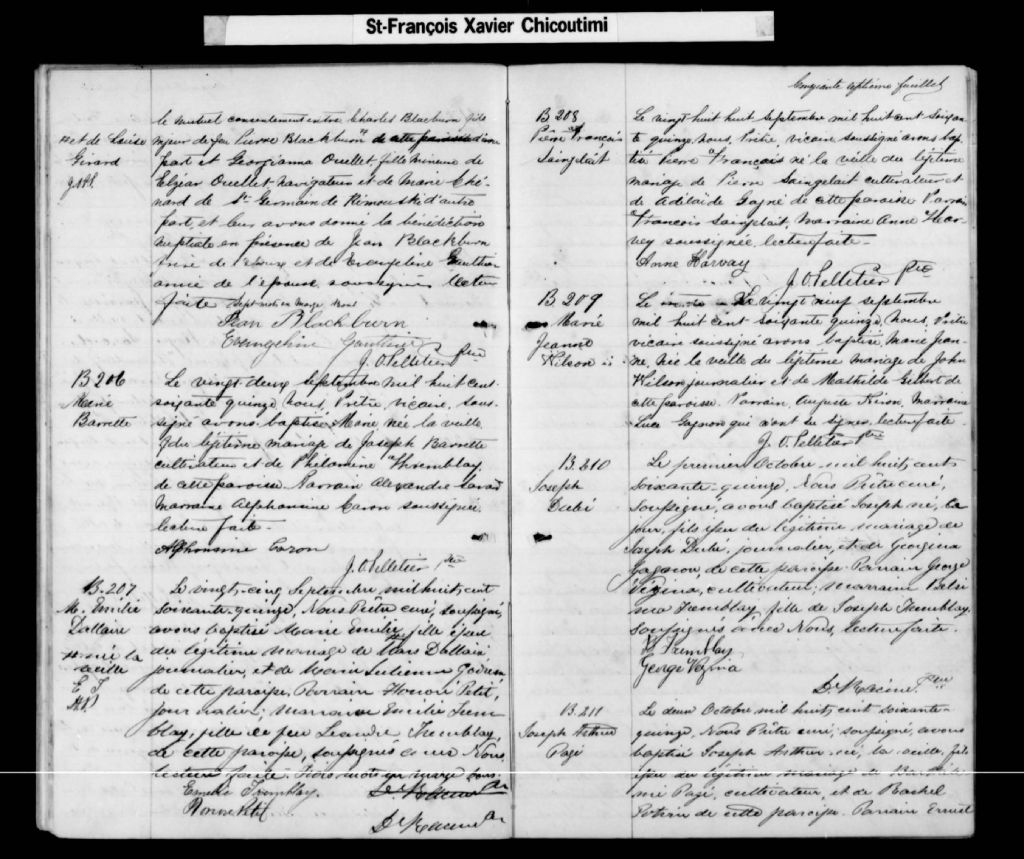 St-François Xavier Chicoutimi
le mutuel consentement entre Charles Blackburn fils
# et de Louise
Girard
mineur de feu Pierre Blackburn # de cette paroisse d'une
part et Georgianna Ouellet, fille mineure de
Elzéar Ouellet navigateur et de Marie Ché-
nard de St Germain de Rimouski d'autre
part, et leur avons donné la bénédiction
nuptiale en présence de Jean Blackburn
de l'époux et de Evangeline Gauthier
amie de l'épouse soussignés lecture
faite Sept mots en marge bons
Jean Blackburn
Evangeline Gauthier
J. O. Pelletier Ptre
B 206
Marie
Barrette
Le vingt deux Septembre mil huit cent
soixante quinze nous, Prêtre, vicaire, sous-
signé avons baptisé Marie née la veille
du légitime mariage de Joseph Barrette
cultivateur et de Philomine Tremblay
de cette paroisse Parrain Alexandre
Marraine Alphonsine Caron soussignée
lecture faite.
Alphonsine Caron
J. O. Pelletier Ptre
B. 207
M. Emilie
Dallaire
# née la
veille
E T
H P
Le vingt-cinq Septembre mil huit cent
soixante-quinze, Nous Prêtre curé, soussigné,
avons baptisé Marie Emilie # fille issue
du légitime mariage de Mars Dallaire
journalier, et de Marie Julienne
de cette paroisse. Parrain Honoré Petit,
journalier; marraine Emilie Trem-
blay, fille de feu Léandre Tremblay,
de cette paroisse, soussignés avec Nous.
Lecture faite. Trois mots en marge bons.
Emilie Tremblay. Ds Racine Ptre
Honoré Petit
Ds Racine Ptre
Cinquante septième feuillet
B 208
Pierre François
Saingelait
Le vingt huit septembre mil huit cent soixan-
te quinze nous, Prêtre, vicaire soussigné avons bap-
tisé Pierre François né la veille du légitime
mariage de Pierre Saingelait cultivateur et
de Adélaïde Gagné de cette paroisse Parrain
François Saingelait, Marraine Anne Har-
vey soussignée, lecture faite -
Anne Harvay
J. O. Pelletier Ptre
B 209
Marie
Jeanne
Wilson
Le Le vingt neuf septembre
mil huit cent soixante quinze, nous, Prêtre
vicaire soussigné avons baptisé Marie Jean-
ne, née la veille du légitime mariage de John
Wilson journalier et de Mathilde Gilbert de
cette paroisse Parrain, Auguste Marraine
Luce Gagnon qui n'ont su signer, lecture faite
J. O. Pelletier Ptre
B. 210
Joseph
Dubé
Le premier Octobre mil huit cent
soixante-quinze, Nous Prêtre curé,
soussigné, avons baptisé Joseph né, ce
jour, fils issu du légitime mariage de
Joseph Dubé, journalier, et de Georgina
Gagnon, de cette paroisse. Parrain George
Vézina, cultivateur; marraine
Tremblay, fille de Joseph Tremblay,
soussignés avec Nous, lecture faite.
Tremblay
George Vezina
Ds Racine Ptre
B. 211
Joseph Arthur
Pagé
Le deux Octobre mil huit cent soixante-
quinze, Nous Prêtre curé, soussigné, avons
baptisé Joseph Arthur né, la veille, fils
issu du légitime mariage de
Pagé, cultivateur, et de Rachel
Potvin de cette paroisse. Parrain